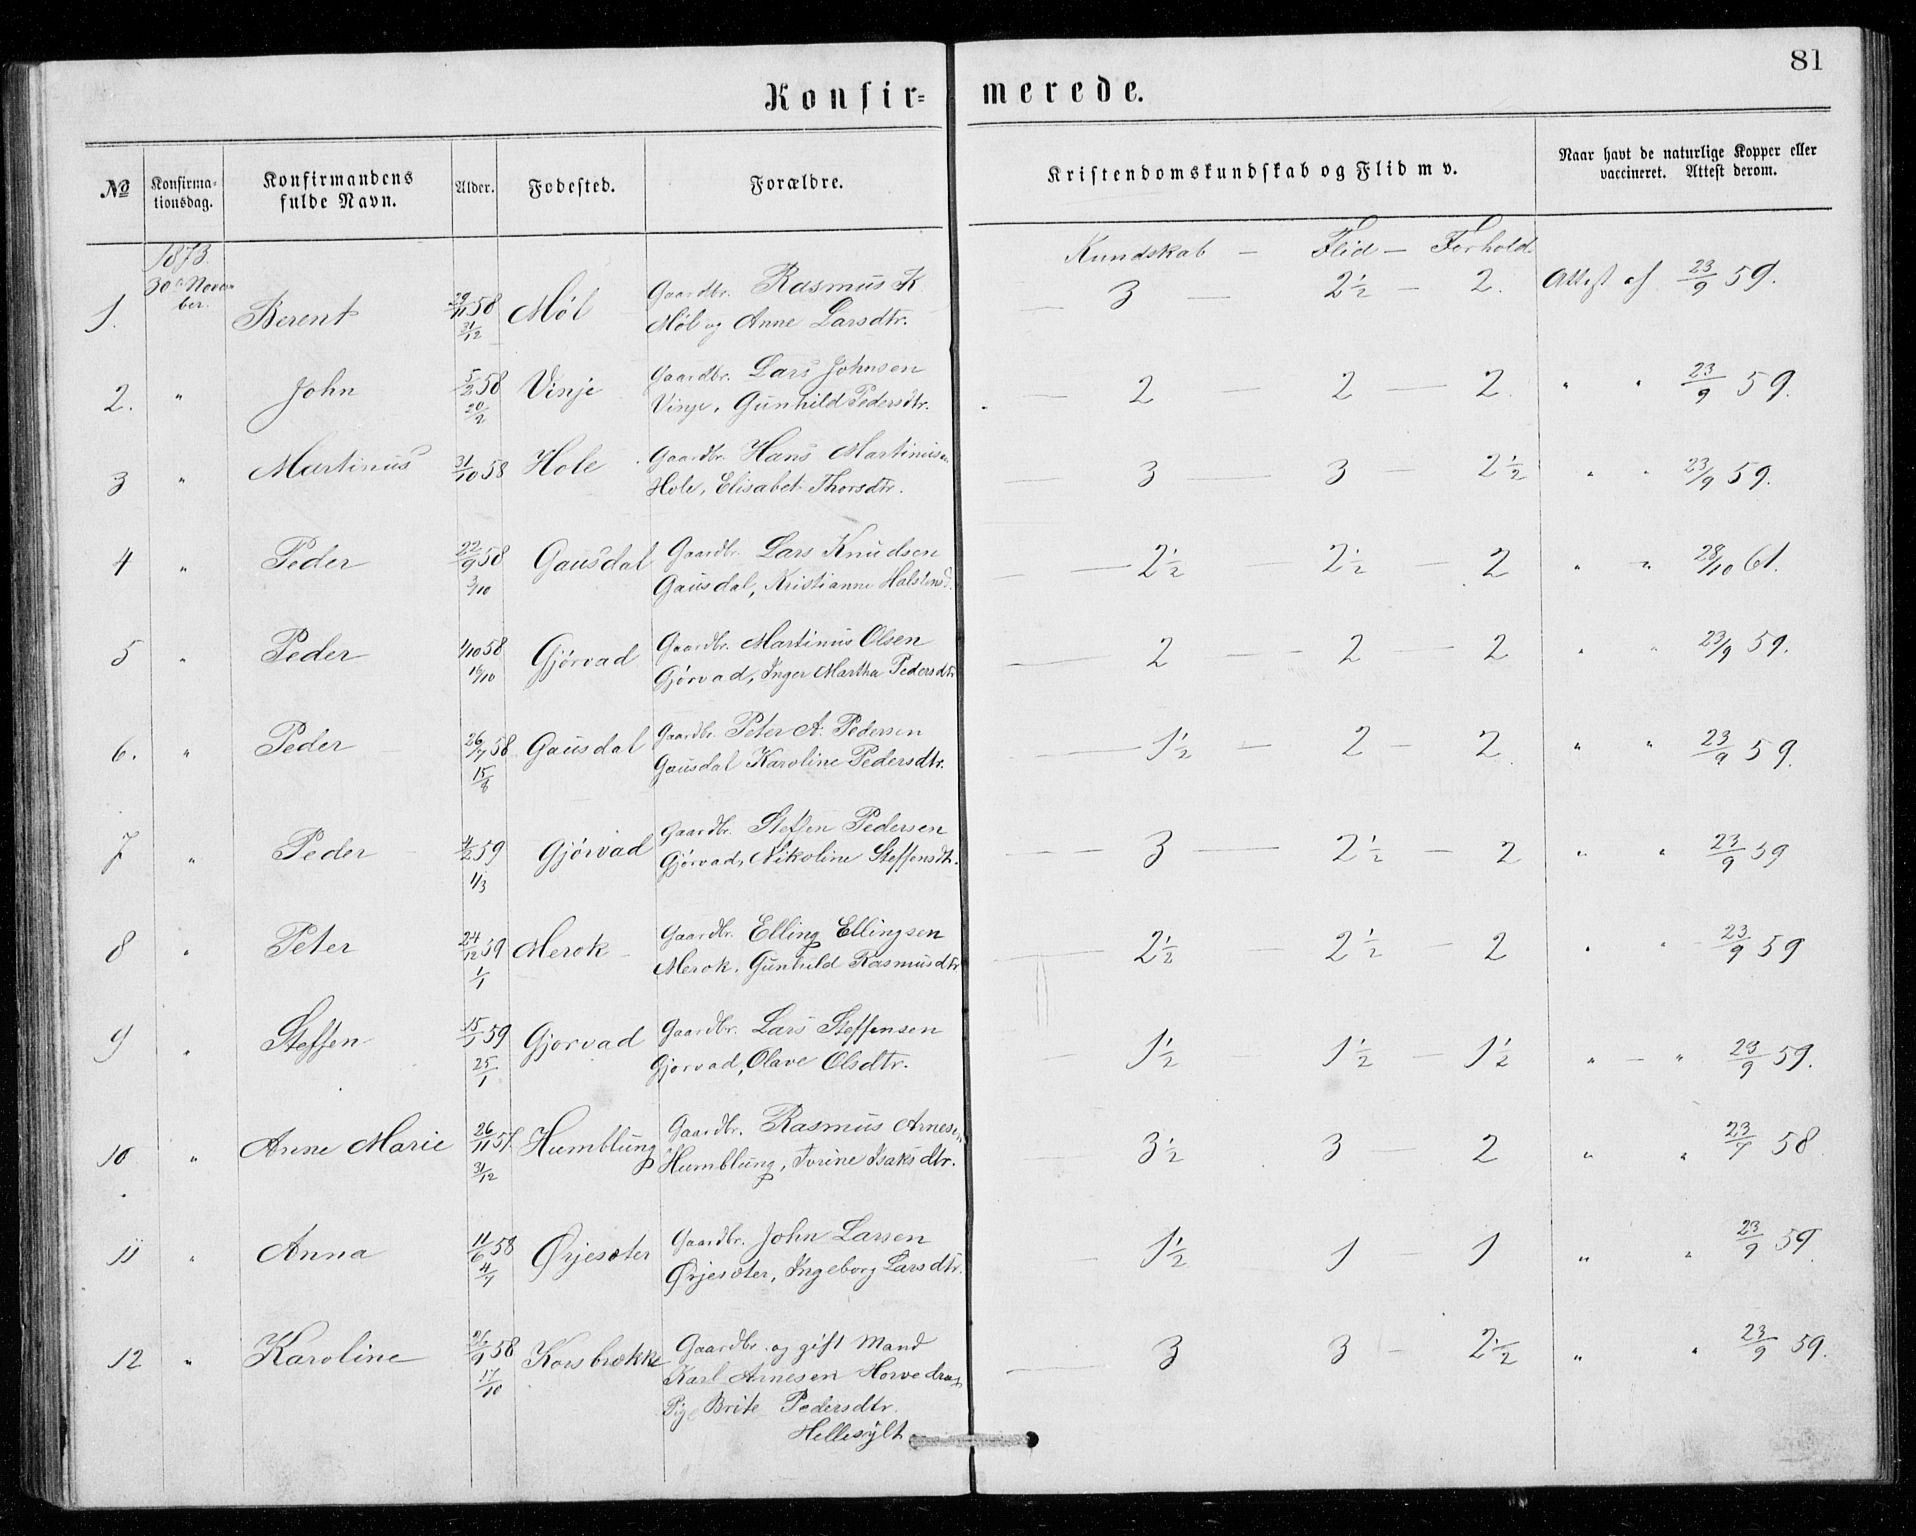 81
Konfir= merede.
№ Konfirma-tionsdag. Konfirmandens fulde Navn. Alder. Fodested. Forældre. Kristendomskundskab og Flid m v. Naar havt de naturlige Kopper eller vaccineret. Attest derom.
1873. Kundskab – Flid – Forhold
1. 30te November. Berent 29/11 58 31/12 Møl Gaardbr. Rasmus K
Møl og Anne Larsdtr. 3 — 2 1/2 – 2. Attest af 23/9 59.
2. " John 5/2 58 20/2 Vinje Gaardbr. Lars Johnsen
Vinje, Gunhild Pedersdtr. 2 — 2 — 2 " " 23/9 59.
3 " Martinus 31/10 58 Hole Gaardbr. Hans Martinusen
Hole, Elisabet Thorsdtr. 3 — 3 — 2 1/2 " " 23/9 59.
4 " Peder 22/9 58 3/10 Gausdal Gaardbr. Lars Knudsen
Gausdal, Kristianne Halstensd. 2 1/2 — 2 1/2 – 2 " " 28/10 61.
5 " Peder 1/10 58 16/10 Gjørvad Gaardbr. Martinus Olsen
Gjørvad, Inger Martha Pedersdtr 2 — 2 — 2 " " 23/9 59.
6. " Peder 26/7 58 15/8 Gausdal Gaardbr. Peter A. Pedersen
Gausdal Karoline Pedersdtr. 1 1/2 – 2 – 2 " " 23/9 59.
7 " Peder 4/2 59 1/3 Gjørvad Gaardbr. Steffen Pedersen
Gjørvad, Nikoline Steffensdt. 3 — 2 1/2 – 2 " " 23/9 59
8 " Peter 24/12 59 1/1 Merok Gaardbr. Elling Ellingsen
Merok, Gunhild Rasmusdtr 2 1/2 – 2 1/2 – 2 " " 23/9 59
9 " Steffen 15/1 59 25/1 Gjorvad Gaardbr. Lars Steffensen
Gjorvad, Olave Olsdtr. 1 1/2 – 1 1/2 – 1 1/2 " – " 23/9 59.
10 " Anne Marie 26/11 57. 31/12 Humblung Gaardbr. Rasmus Arnesen
Humblung, Torine Isaksdtr. 3 1/2 3 – 2 " " 23/7 58
11 " Anna 11/6 58 4/7 Ørjesæter Gaardbr. John Larsen
Ørjesæter, Ingeborg Larsdtr. 1 1/2 1 – 1 " " 23/9 59.
12 " Karoline 26/9 58 17/10 Korsbrække Gaardbr. og gift Mand
Karl Arnesen Horvedrag
Pige Brite Pedersdtr.
Hellesylt 3 3 – 2 1/2 " " 23/9 59.